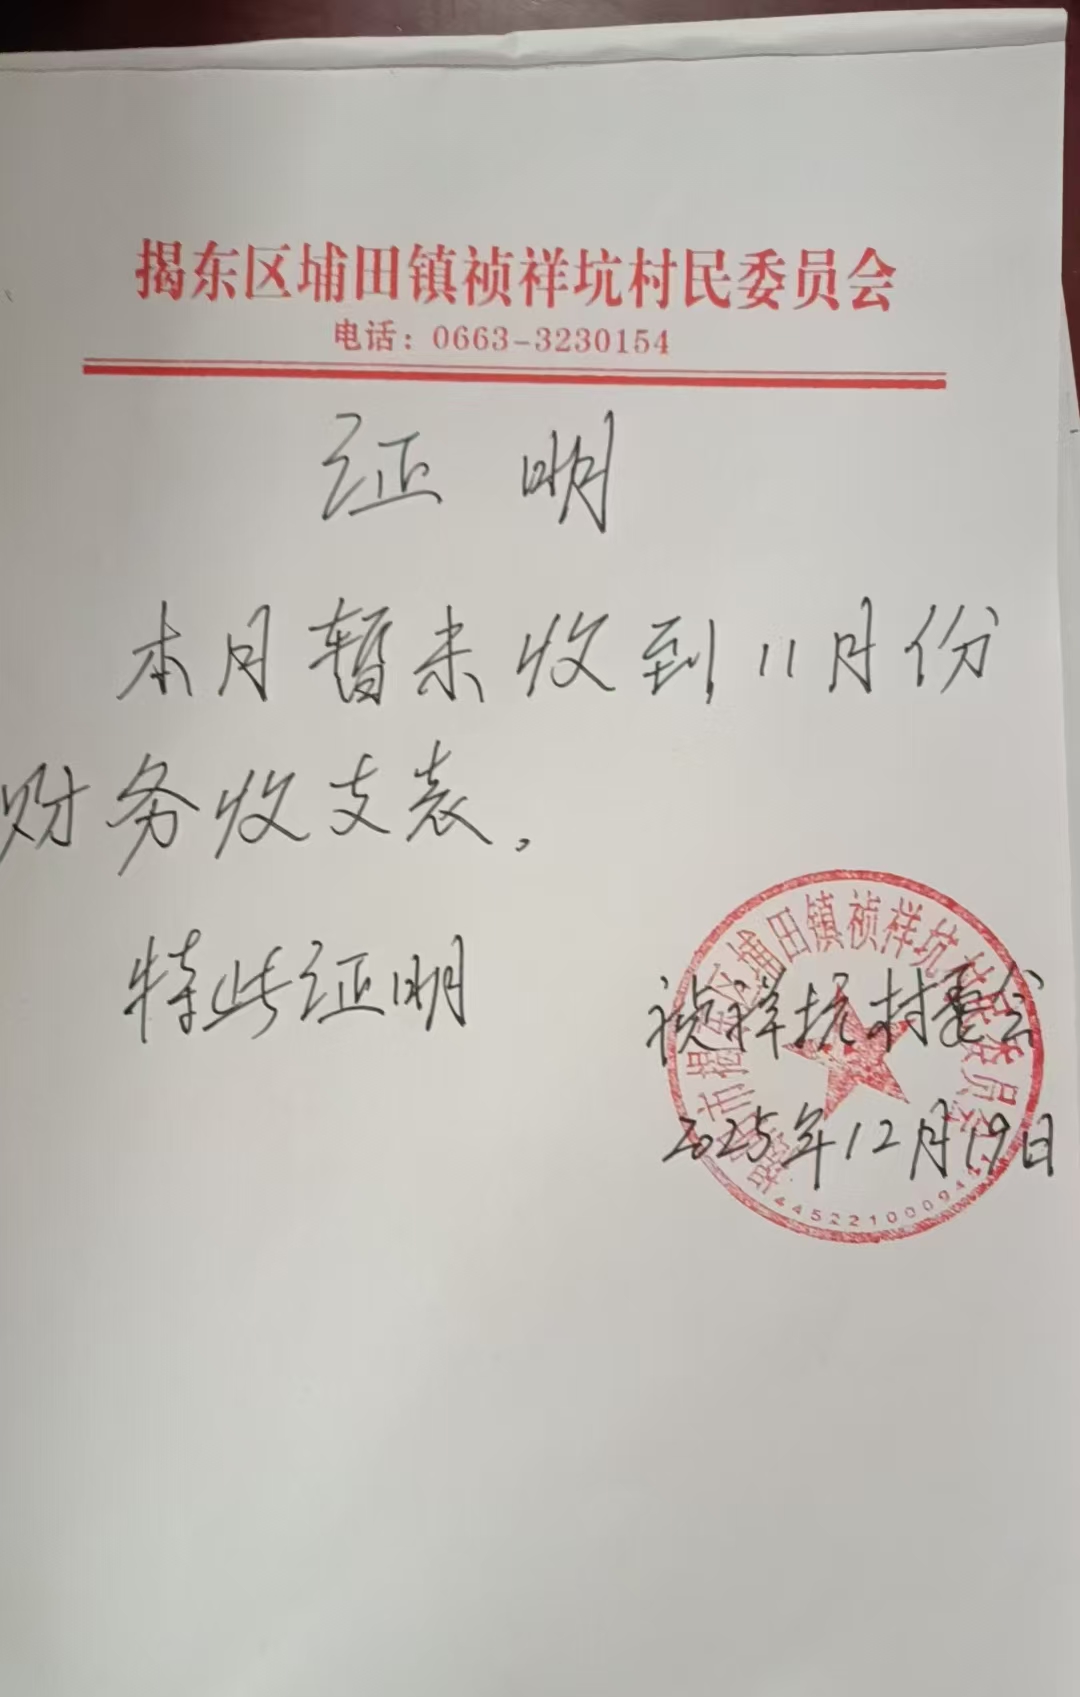 揭东区埔田镇祯祥坑村民委员会
电话：0663-3230154
证明
本月暂未收到11月份
财务收支表。
特此证明
祯祥坑村委会
2025年12月19日
揭阳市揭东区埔田镇祯祥坑村民委员会
4452210009